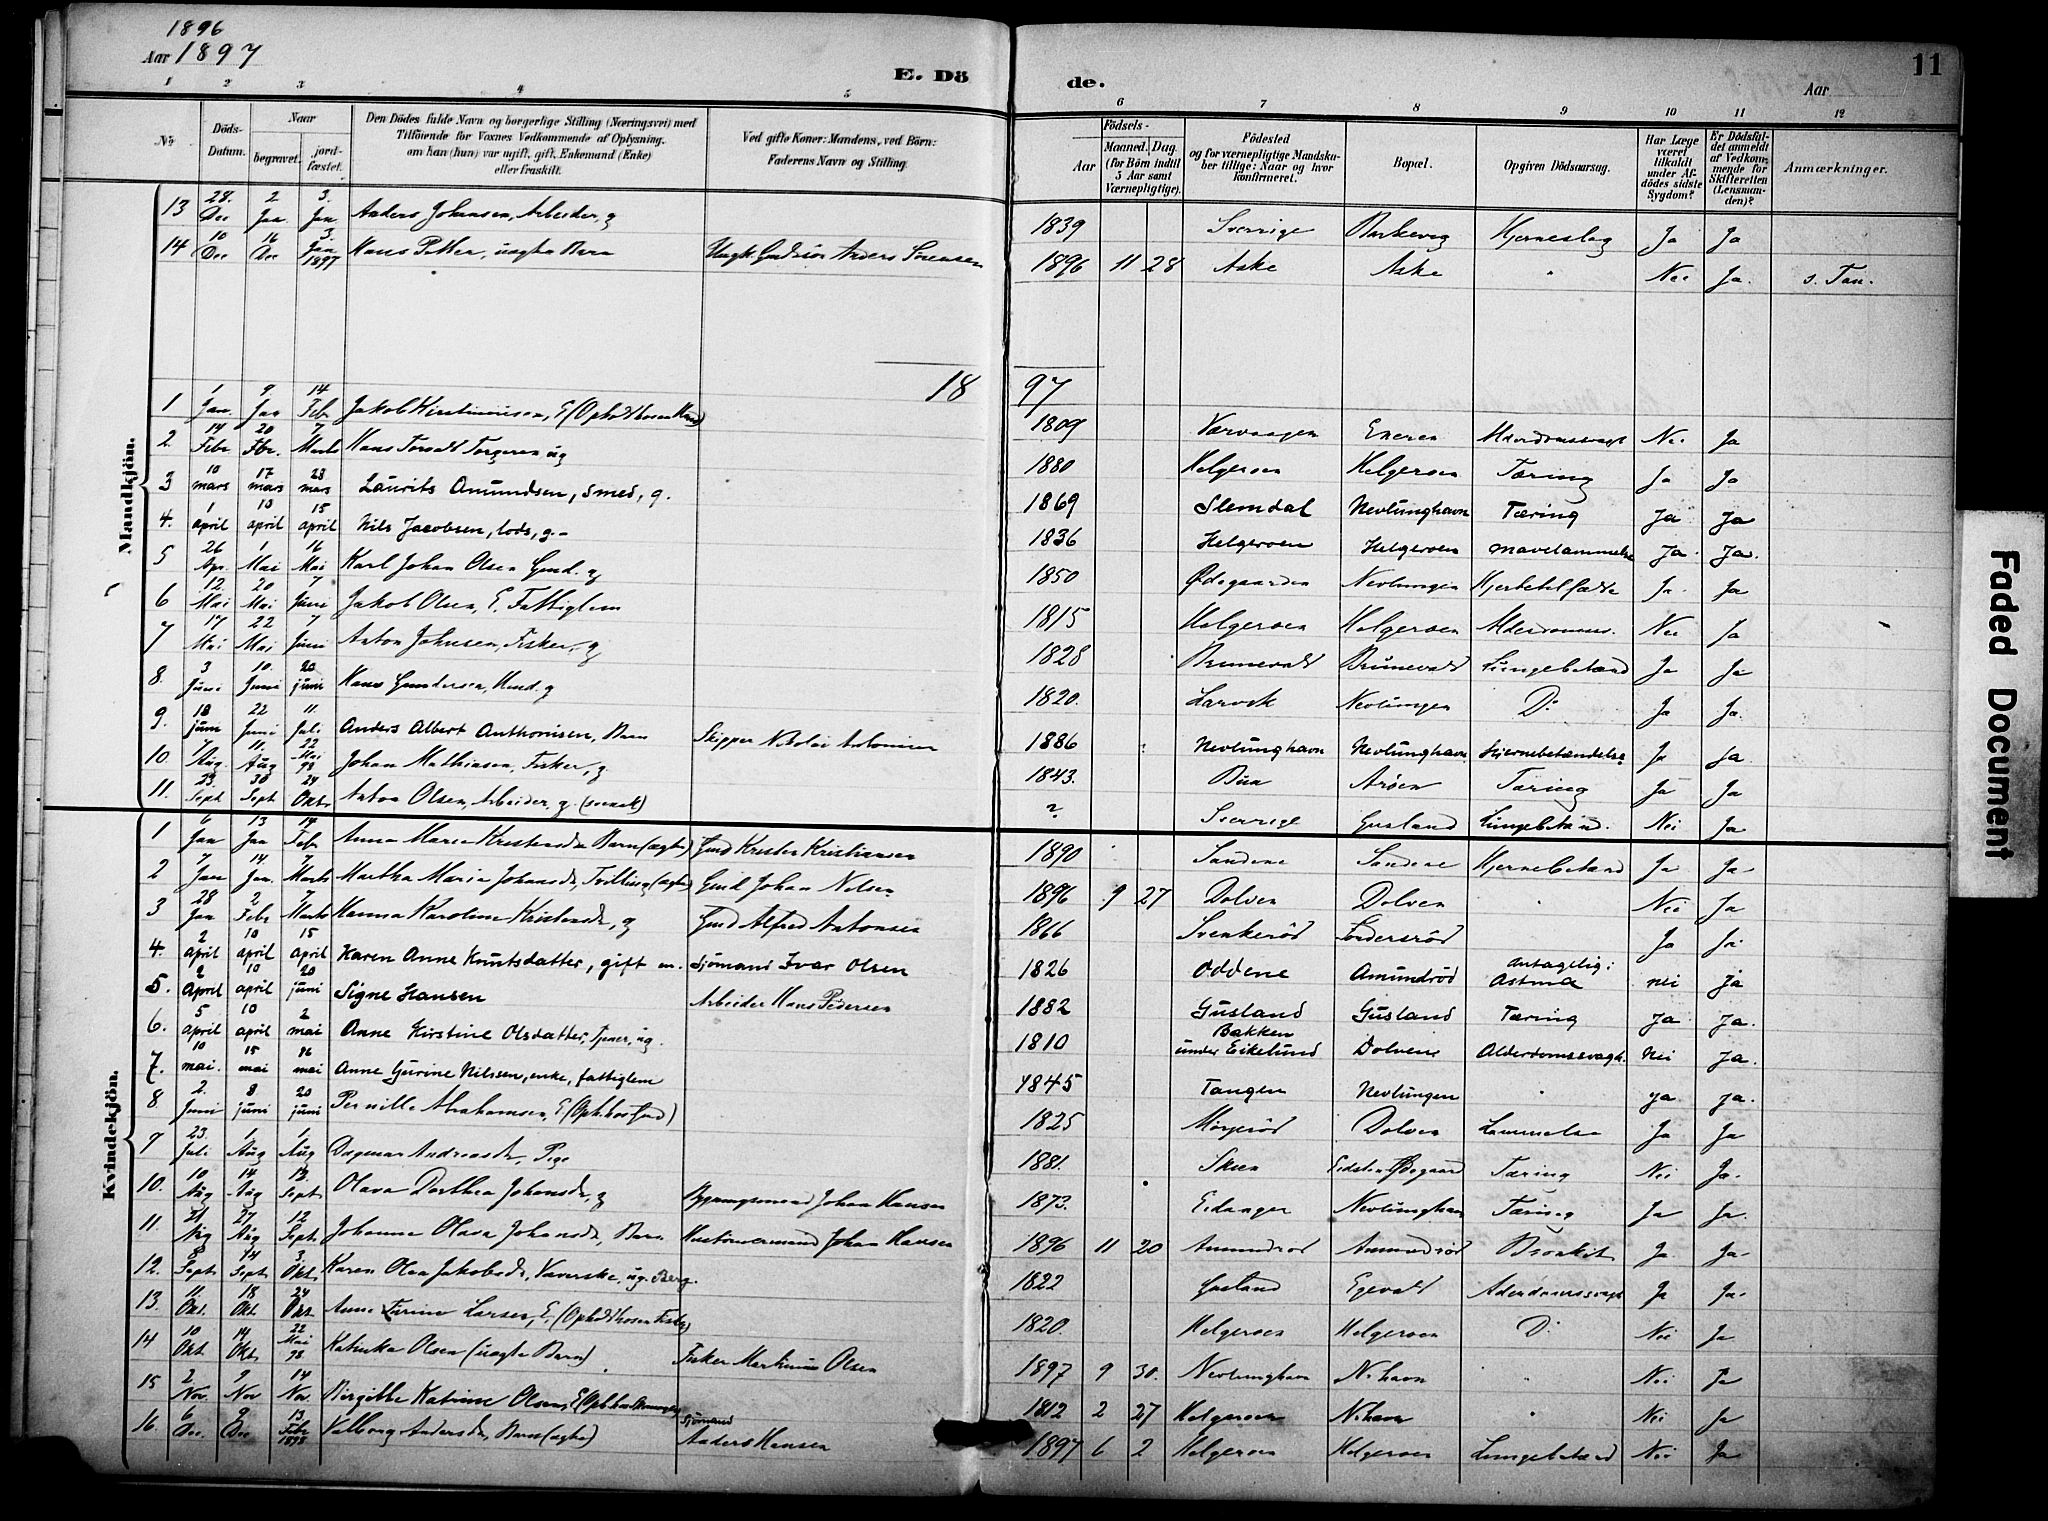 1896
Aar 1897
E. Dö de.
Aar
11
1 2 3 4 5 6 7 8 9 10 11 12
No
Döds-Datum.
Naar begravet. jordfæstet.
Den Dödes fulde Navn og borgerlige Stilling (Næringsvei) med Tilföiende for Voxnes Vedkommende af Oplysning, om han (hun) var ugift, gift, Enkemand (Enke) eller fraskilt.
Ved gifte Koner: Mandens, ved Börn: Faderens Navn og Stilling.
Födsels-
Aar Maaned. Dag. (for Börn indtil 5 Aar samt Værnepligtige).
Födested og for værnepligtige Mandskaber tillige: Naar og hvor konfirmeret.
Bopæl.
Opgiven Dödsaarsag.
Har Læge været tilkaldt under Afdödes sidste Sygdom?
Er Dödsfaldet anmeldt af Vedkommende for Skifteretten (Lensmanden)?
Anmærkninger.
Mandkjön.
13 28. Dec 2 Jan 3. Jan Anders Johansen, Arbeider, g 1839 Sverrige Barkevig Hjerneslag Ja Ja
14 10 Dec 16 Dec 3. Jan 1897 Hans Petter, uægte Barn Ungk. Anders Sörensen 1896 11 28 Aske Aske " Nei Ja. s. Tan.
18 97
1 1 Jan. 9 Jan 14 Febr Jakob Kristiansen, E 1809 Værvaagen Eneren Alderdomssvagh Nei Ja
2. 14 Febr 20 Fbr. 7 Marts Hans Torvald Torgersen ug 1880 Helgeroen Helgeroen Tæring Ja Ja
3 10 mars 17 mars 28 mars Laurits Amundsen, smed, g. 1869 Slemdal Nevlunghavn Tæring Ja Ja
4. 1 april 13 april 15 april Nils Jacobsen, lods, g.- 1836 Helgeroen Helgeroen mavelammelse Ja. Ja.
5 26 Apr. 1 Mai 16 Mai Karl Johan Olsen Gmd. g 1850 Ødegaarden Nevlungen Hjertetilfælde Ja Ja
6 12. Mai 20 Mai 7 Juni Jakob Olsen, E. Fattiglem 1815 Helgeroen Helgeroen Alderdomssv. Nei Ja
7 17 Mai 22 Mai 7 Juni Anton Johnsen, Fisker, g 1828 Brunevald Brunevald Lungebetænd Ja Ja
8. 3 Juni 10. Juni 20 juni Hans Gundersen, g 1820. Larvik Nevlungen Do Ja Ja.
9. 18 juni 22 Juni 11. Juli Anders Albert Anthonisen, Barn Skipper Nikolai Antonisen 1886 Nevlunghavn Nevlunghavn Hjernebetændelse Ja Ja.
10. 7 Aug. 11. Aug 22 Mai 98 Johan Mathiasen, Fisker, g 1843. Bua Aröen Tæring Ja Ja
11. 23. Sept 30 Sept 24 Okt. Anton Olsen, Arbeider, g. (svensk) ? Sverrige Gusland Lungebetænd. Nei Ja
Kvindekjön.
1 6 Jan 13 Jan 14 Febr Anna Marie Kristensdtr Barn (ægte) Gmd Krister Kristiansen 1890 Sandene Sandene Hjernebetænd Ja Ja
2 7 Jan 14. Jan. 7 Marts Martha Maria Johansdtr, Tvilling (ægte) Gmd Johan Nilsen 1896 9 27 Dolven Dolven " Nei Ja
3 28 Jan 2 Febr 7 Marts Hanna Karoline Kristensdtr, g Gmd Alfred Antonsen 1866 Svenkeröd Ja Ja
4. 2 april 10 april 15 april Karen Anne Knutsdatter, gift m. Sjömand Ivar Olsen 1826 Oddene Amundröd antagelig: Astma nei ja
5. 2 april 10 april 20 juni Signe Hansen Arbeider Hans Pedersen 1882 Gusland Gusland Tæring Ja Ja.
6. 5 april 10 april 2 mai Anne Kirstine Olsdatter, Tjener, ug. 1810 Bakken under Eikelund Dolvene Alderdomssvagh. nei Ja.
7. 10 mai. 15 mai 26 mai Anne Gurine Nilssen, enke, fattiglem 1845 Tangen Nevlungen " ja ja.
8 2. Juni 8 juni 20 juni Pernille Abrahamsen, E 1825 Mörjeröd Dolven Lammelse Ja Ja
9 23. Juli 1 Aug 1 Aug Dagmar Andreasdtr, Pige 1881. Skien Tæring Nei Ja.
10. 10 Aug 14 Aug 12. Sept. Olava Dorthea Johansdtr, g Bygningsmand Johan Hansen 1873. Eidanger Nevlunghavn Tæring Ja Ja.
11. 21 Aug 27 Aug 12 Sept. Johanna Olava Johansdtr, Barn Johan Hansen 1896 11 20 Amundröd Amundröd Bronkit Ja Ja
12. 8 Sept 14 Sept 3. Okt. Karen Olea Jakobsdtr, Væverske, ug. 1822 Gusland Egevald Ja Ja
13. 11. Okt. 18 Okt. 24 Okt Anne Larsen, E. 1820. Helgeroen Helgeroen Do Nei Ja
14 10 Okt. 14 Okt. 22 Mai 98. Katinka Olsen (uægte Barn) Fisker Martinius Olsen 1897 9 30. Nevlunghavn N.havn " Nei Ja
15 2. Nov. 9 Nov 14 Nov. Birgitte Katrine Olsen, E 1812 2 27 Helgeroen N.havn " Nei Ja
16. 6 Dec. 9 Dec 13. Febr 1898 Valborg Andersdtr, Barn (ægte) Sjömand Anders Hansen 1897 6 2 Helgeroen Helgeroen Lungebetænd Nei Ja
Faded Document